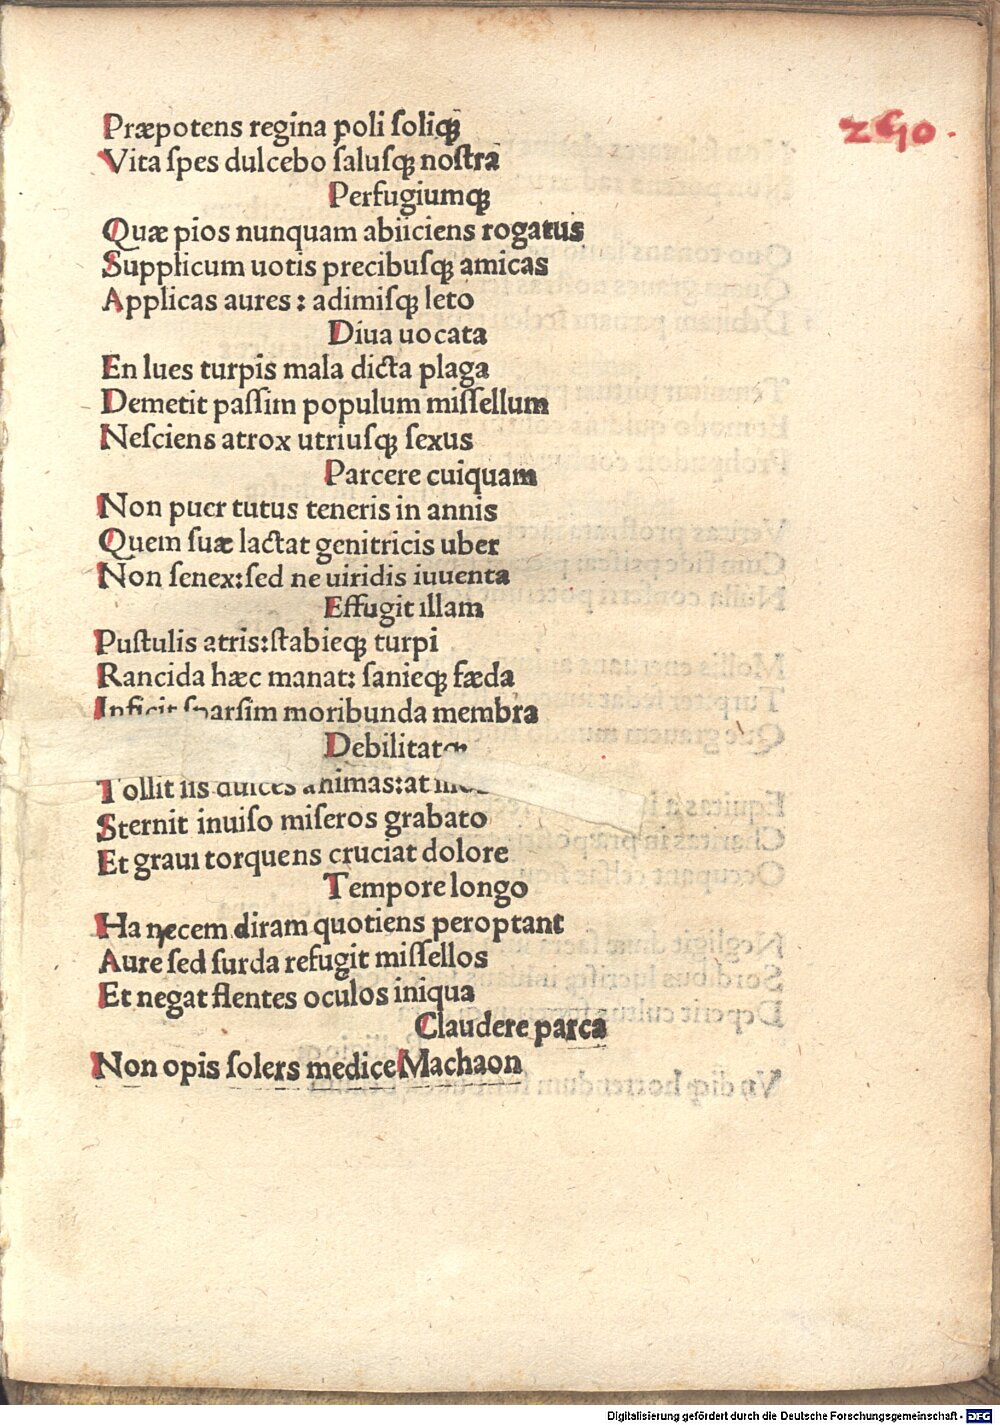 260.
Præpotens regina poli ſoliqꝫ
Vita ſpes dulcebo ſaluſqꝫ noſtra
Perfugiumqꝫ
Quæ pios nunquam abiiciens rogatus
Supplicum uotis precibuſqꝫ amicas
Applicas aures: adimiſqꝫ leto
Diua uocata
En lues turpis mala dicta plaga
Demetit paſſim populum miſſellum
Neſciens atrox utriuſqꝫ ſexus
Parcere cuiquam
Non puer tutus teneris in annis
Quem ſuæ lactat genitricis uber
Non ſenex:ſed ne uiridis iuuenta
Effugit illam
Puſtulis atris:ſtabieqꝫ turpi
Rancida hæc manat: ſanieqꝫ fæda
Inficit ſparſim moribunda membra
Debilitatqꝫ
Tollit iis dulces animas:at
Sternit inuiſo miſeros grabato
Et graui torquens cruciat dolore
Tempore longo
Ha necem diram quotiens peroptant
Aure ſed ſurda refugit miſſellos
Et negat flentes oculos iniqua
Claudere parca
Non opis ſolers medice Machaon
Digitalisierung gefördert durch die Deutsche Forschungsgemeinschaft - DFG